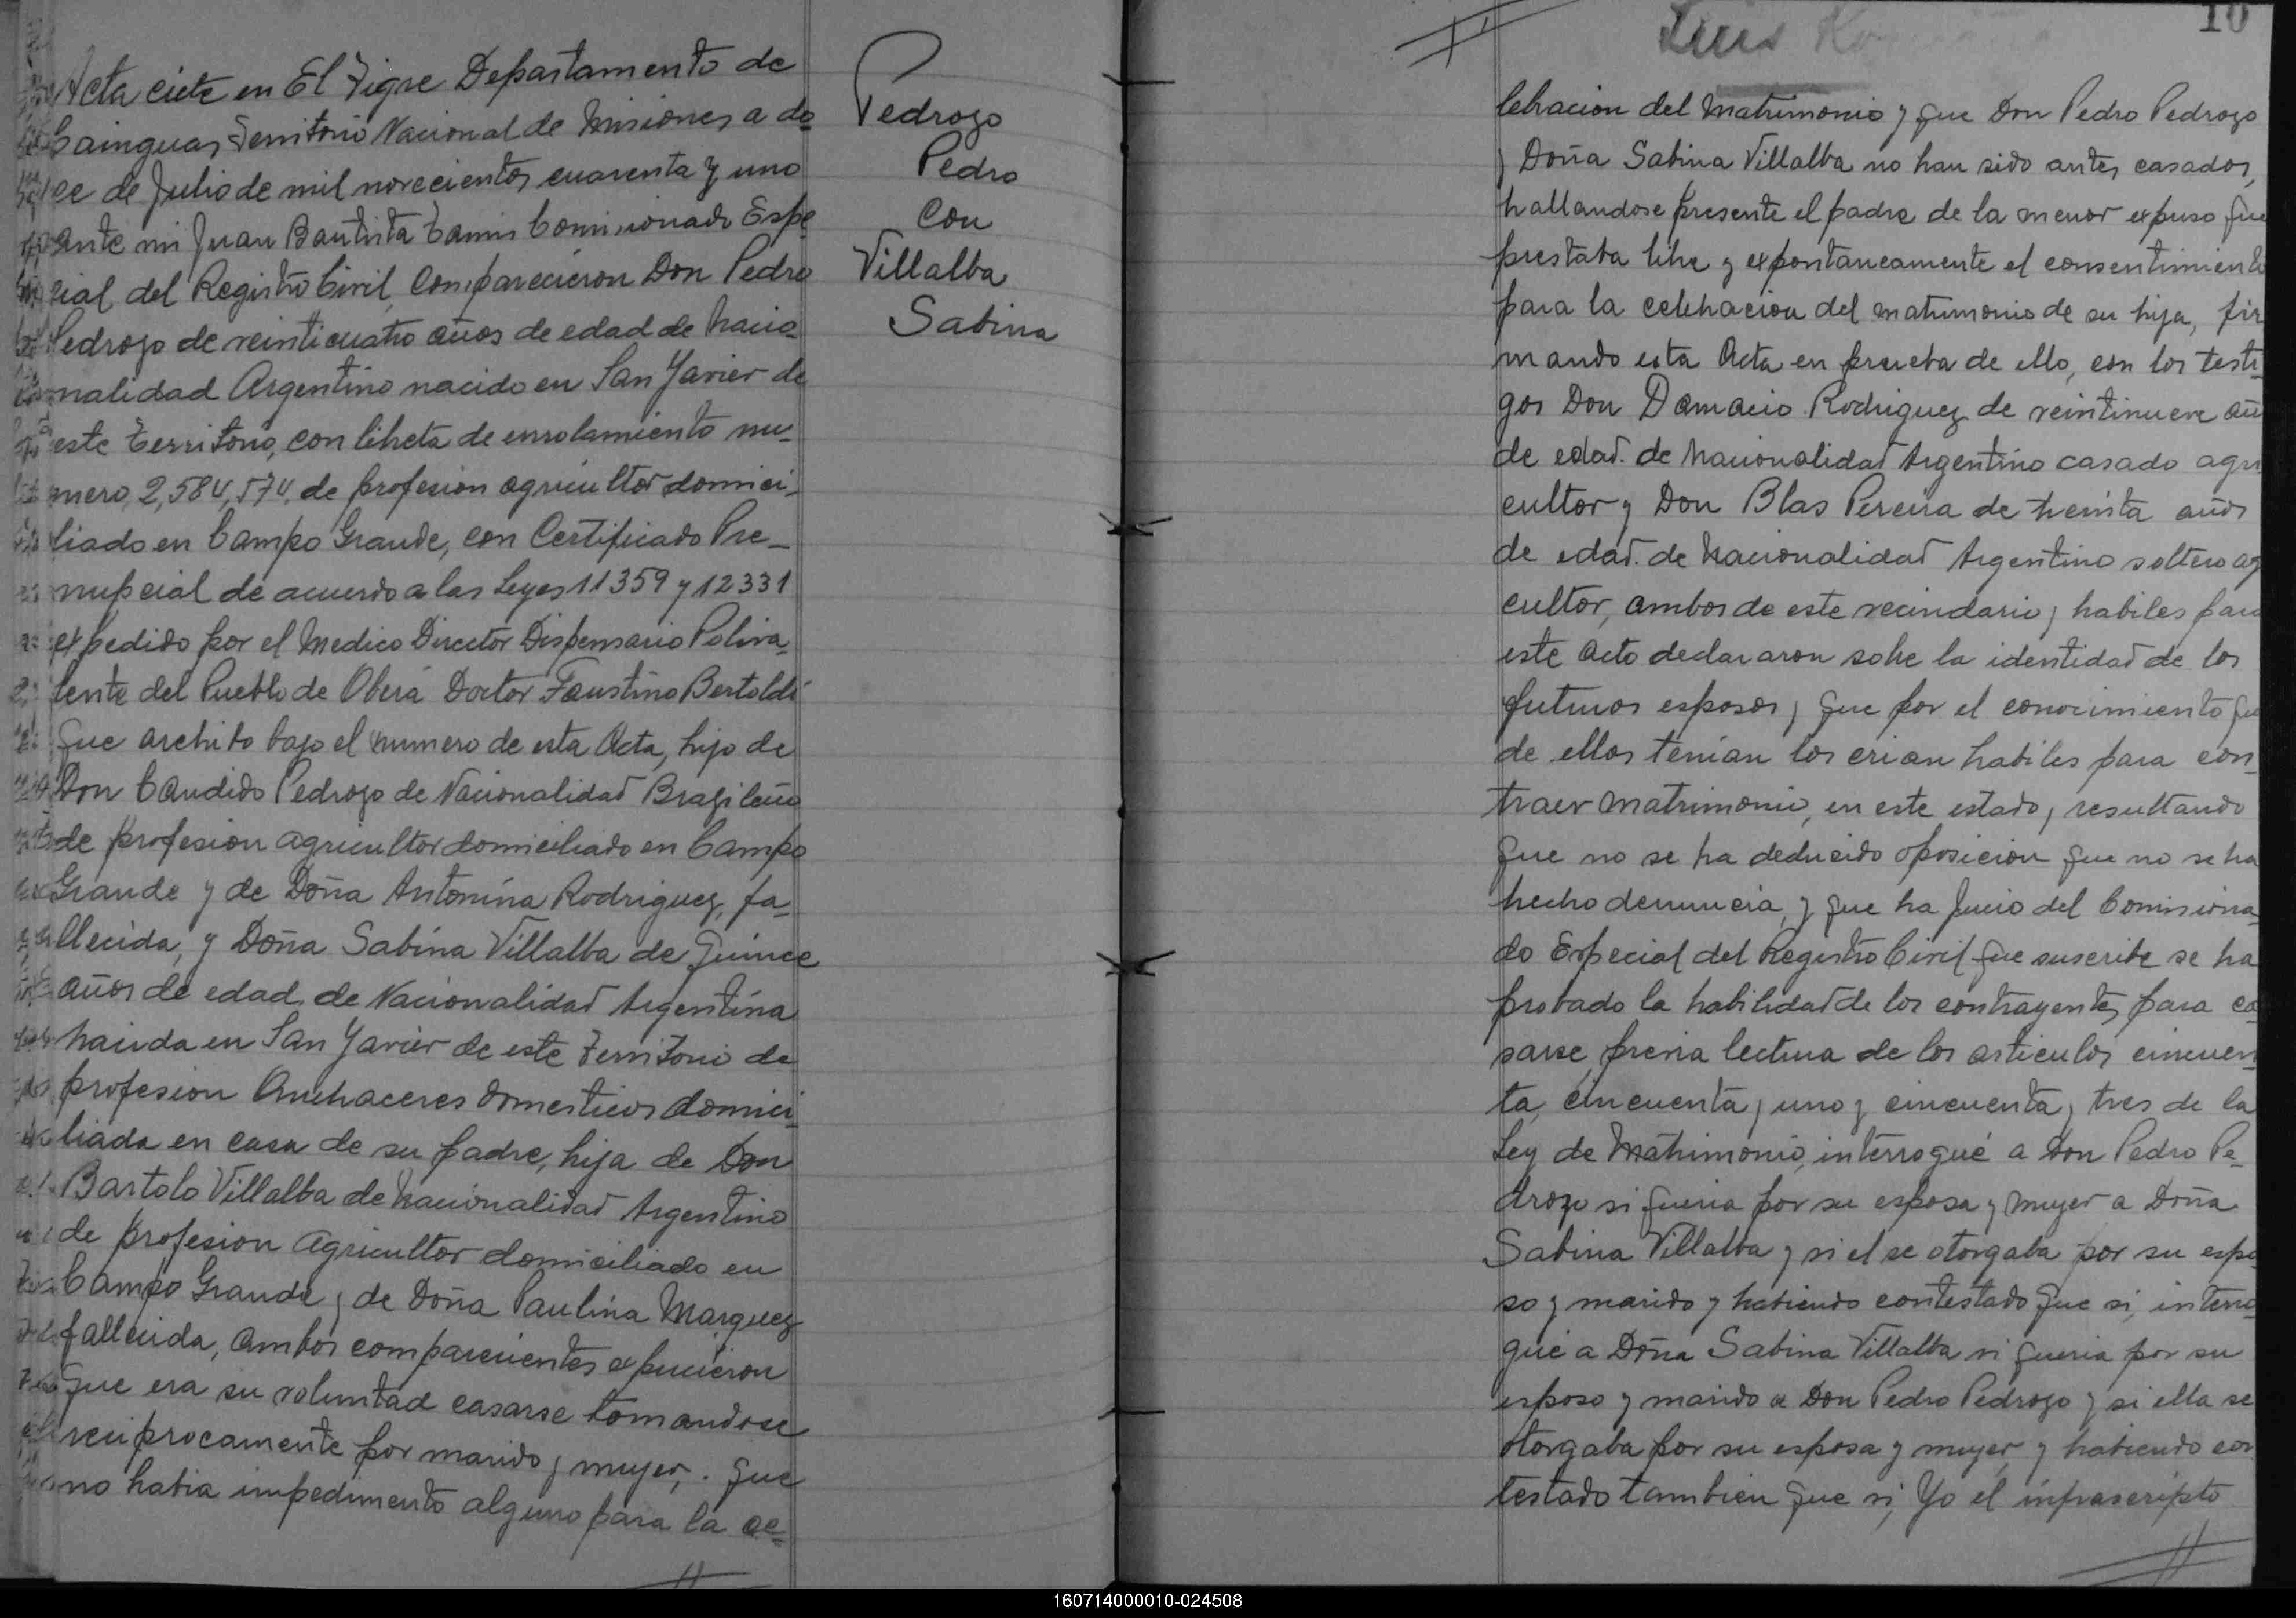 Acta ciete en El Tigre Departamento de
Cainguas Territorio Nacional de Misiones a do-
ce de Julio de mil novecientos cuarenta y uno
ante mi Juan Bautista Comisionado Espe
cial del Registro Civil, Comparecieron Don Pedro
Pedrozo de veinticuatro años de edad de nacio-
nalidad Argentino nacido en San Javier de
este Territorio, con libreta de enrolamiento nu-
mero, 2,584,574, de profesion agricultor domici-
liado en Campo Grande, con Certificado Pre-
nupcial de acuerdo a las Leyes 11359 y 12331
expedido por el Medico Director Dispensario Poliva-
lente del Pueblo de Oberá Doctor Faustino Bertoldi
que archibo bajo el numero de esta Acta, hijo de
Don Candido Pedrozo de Nacionalidad Brazileño
de profesion agricultor domiciliado en Campo
Grande y de Doña Antonina Rodriguez, fa-
llecida, y Doña Sabina Villalba de quince
años de edad, de Nacionalidad Argentina
nacida en San Javier de este Territorio de
profesion Quehaceres domesticos domici-
liada en casa de su padre, hija de Don
Bartolo Villalba de nacionalidad Argentino
de profesion Agricultor domiciliado en
Campo Grande y de Doña Paulina Marquez
fallecida, ambos comparecientes expucieron
que era su voluntad casarse tomandose
reciprocamente por marido y mujer, . que
no habia impedimento alguno para la ce-
Pedrozo
Pedro
Con
Villalba
Sabina
10
Luis
lebracion del Matrimonio y que Don Pedro Pedrozo
y Doña Sabina Villalba no han sido antes casados,
hallandose presente el padre de la menor expuso que
prestaba libre y expontaneamente el consentimiento
para la celebracion del matrimonio de su hija, fir
mando esta Acta en prueba de ello, con los testi-
gos Don Damacio Rodriguez de veintinueve añ
de edad. de nacionalidad Argentino casado agri
cultor y Don Blas Pereira de treinta años
de edad. de nacionalidad Argentino soltero ag
cultor, ambos de este vecindario y habiles para
este Acto declararon sobre la identidad de los
futuros esposos y que por el conocimiento que
de ellos tenian los crian habiles para con-
traer matrimonio, en este estado, resultando
que no se ha deducido oposicion que no se ha
hecho denuncia, y que ha Juicio del Comisiona-
do Especial del Registro Civil que suscribe se ha
probado la habilidad de los contrayentes para ca-
sarse, previa lectura de los articulos cincuen-
ta, cincuenta y uno y cincuenta y tres de la
Ley de Matrimonio, interrogué a Don Pedro Pe-
drozo si queria por su esposa y mujer a Doña
Sabina Villalba y si el se otorgaba por su espo-
so y marido y habiendo contestado que si, interro
gué a Doña Sabina Villalba si queria por su
esposo y marido a Don Pedro Pedrozo y si ella se
otorgaba por su esposa y mujer, y habiendo con
testado tambien que si, Yo el infrascripto
160714000010-024508